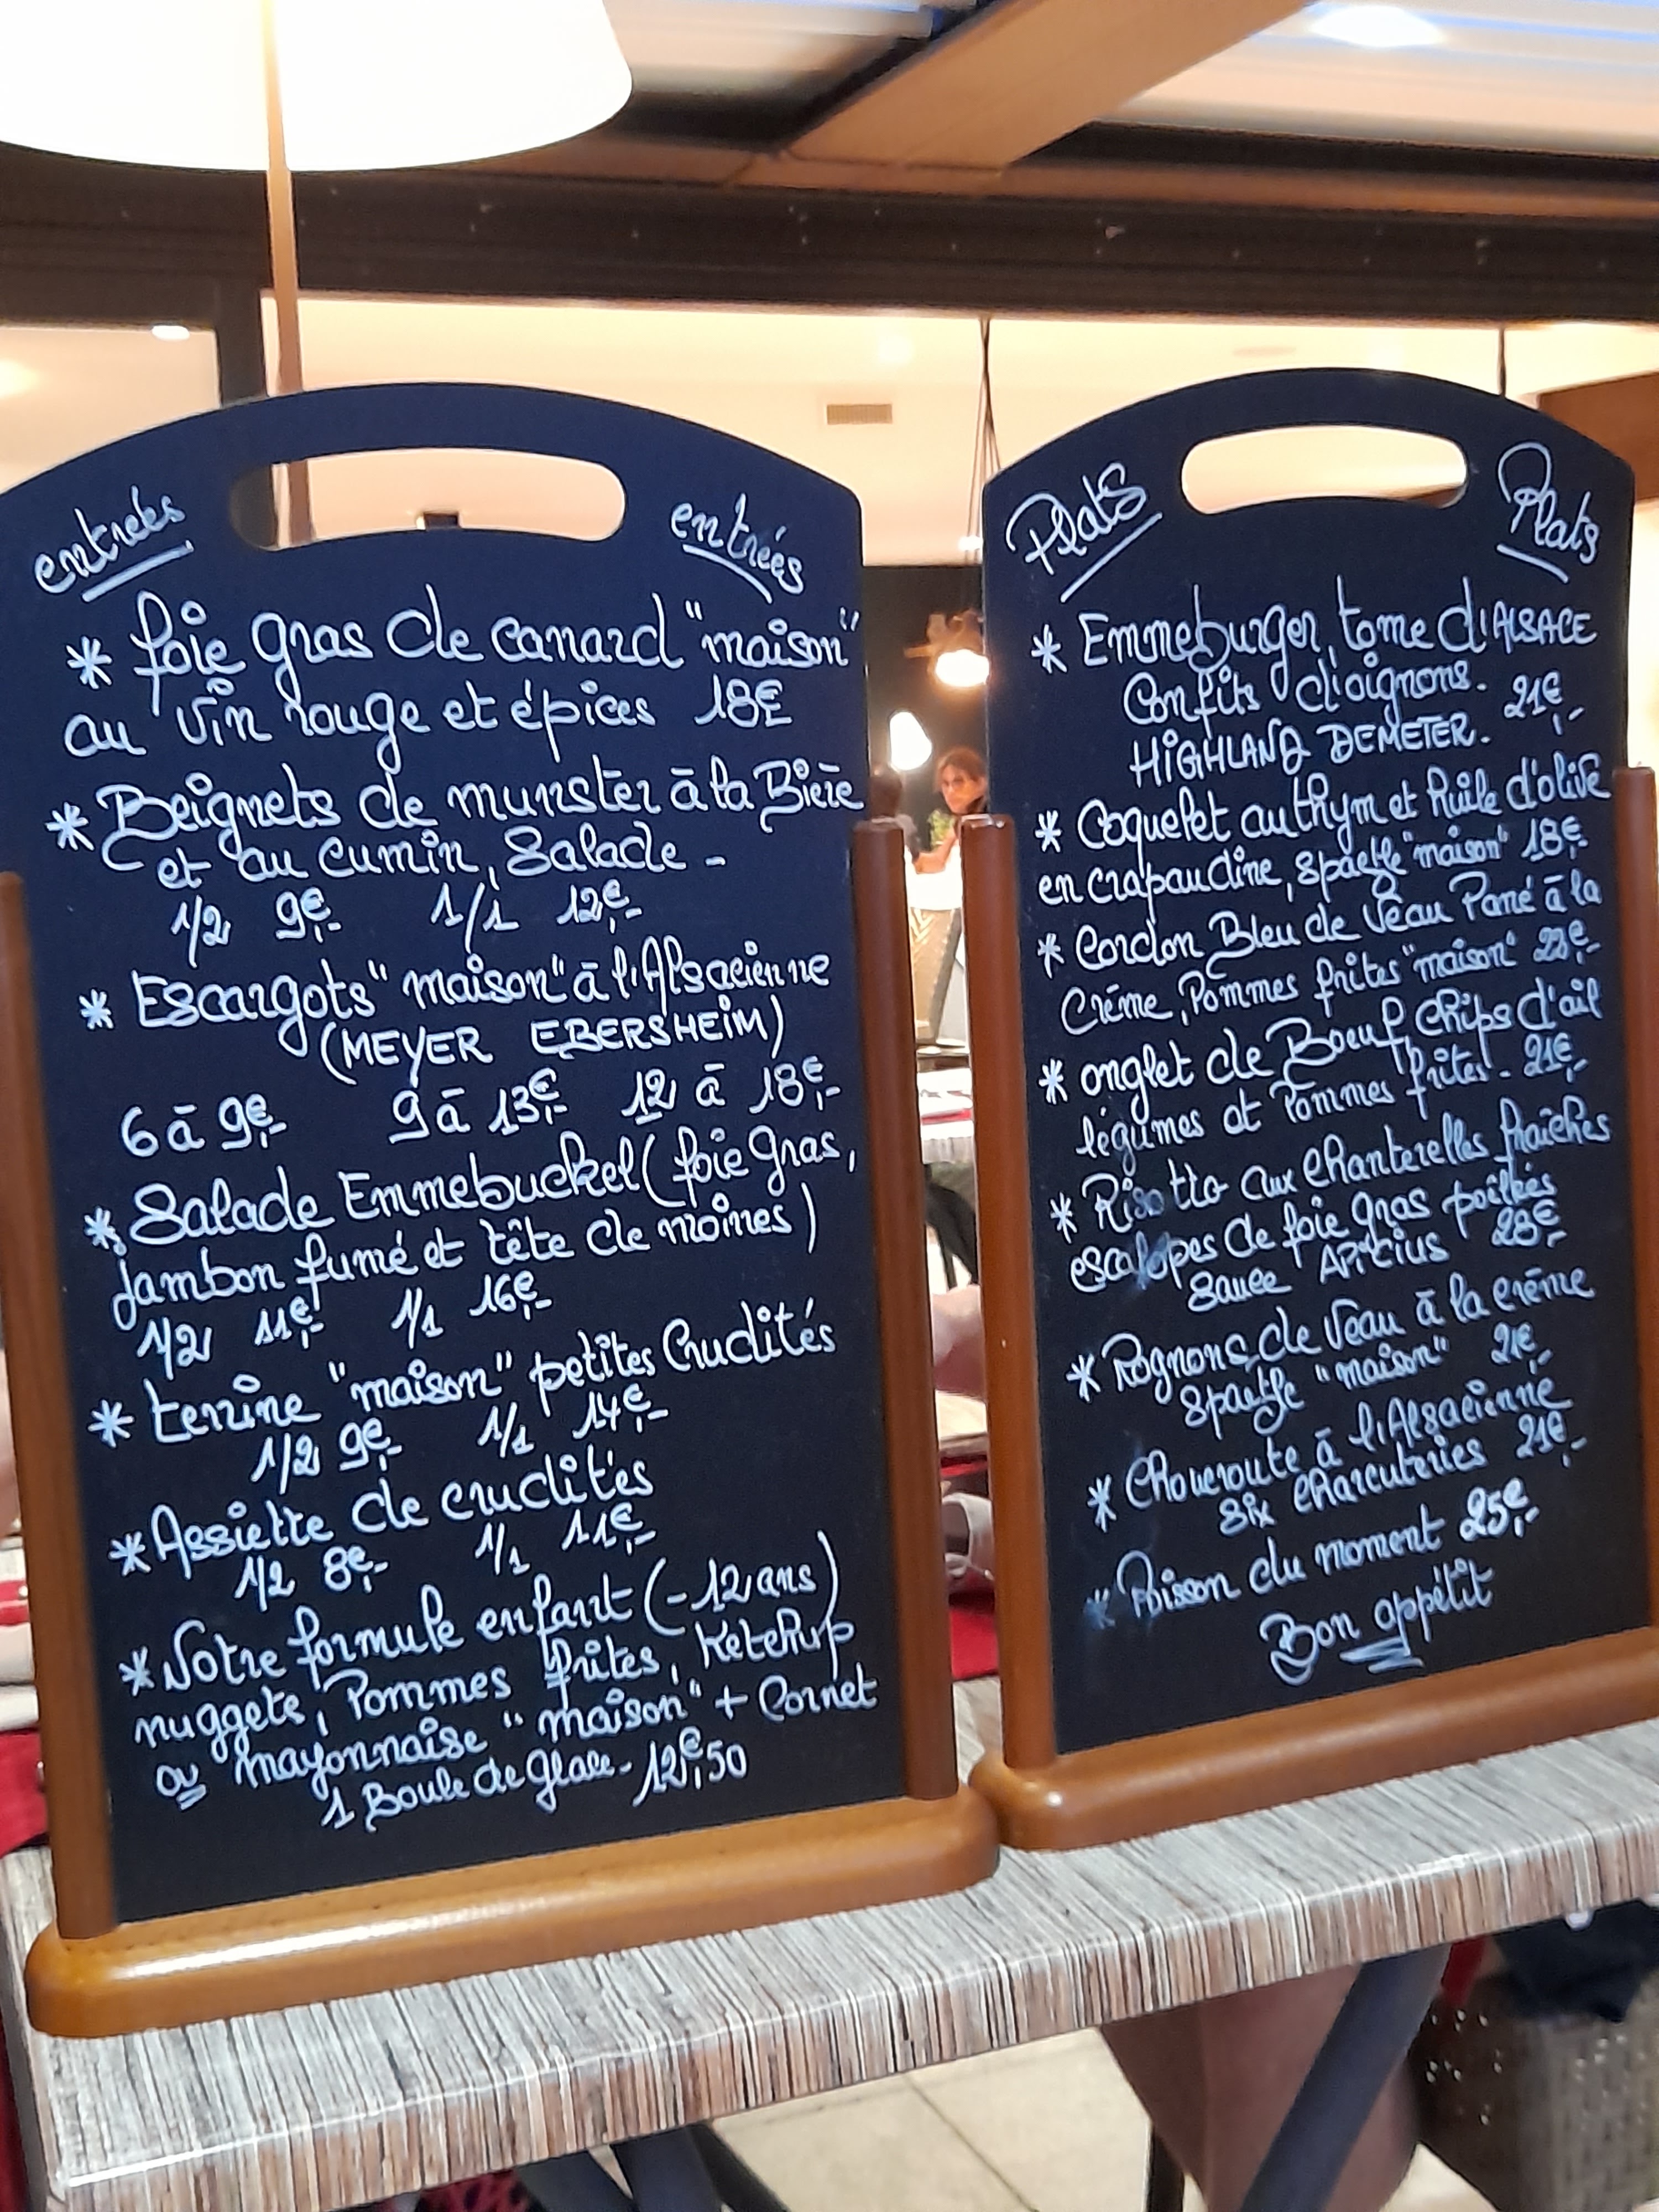 entrées
entrées
* foie gras de canard "maison"
au vin rouge et épices 18€
* Beignets de munster à la Bière
et au cumin, Salade -
1/2 9€,- 1/1 12€,-
* Escargots "maison" à l'Alsacienne
(MEYER EBERSHEIM)
6 à 9€,- 9 à 13€,- 12 à 18€,-
* Salade Emmebuckel (foie gras,
jambon fumé et tête de moines)
1/2 11€,- 1/1 16€,-
* terrine "maison" petites Crudités
1/2 9€,- 1/1 14€,-
* Assiette de crudités
1/2 8€,- 1/1 11€,-
* Notre formule enfant (-12 ans)
nuggets, Pommes frites, Ketchup
ou mayonnaise "maison" + Cornet
1 Boule de glace - 12€,50
Plats
Plats
* Emmeburger, tome d'ALSACE
Confits d'oignons.
HIGHLAND DEMETER. 21€,-
* Coquelet au thym et huile d'olive
en crapaudine, spaetzle "maison" 18€,-
* Cordon Bleu de Veau Pané à la
Crème, Pommes frites "maison" 23€,-
* onglet de Boeuf, Chips d'ail
légumes et Pommes frites - 21€,-
* Risotto aux Chanterelles fraîches
escalopes de foie gras poêlées
Sauce APICIUS 28€,-
* Rognons de Veau à la crème
Spaetzle "maison" 21€,-
* Choucroute à l'Alsacienne
six Charcuteries 21€,-
* Poisson du moment 25€,-
Bon appétit